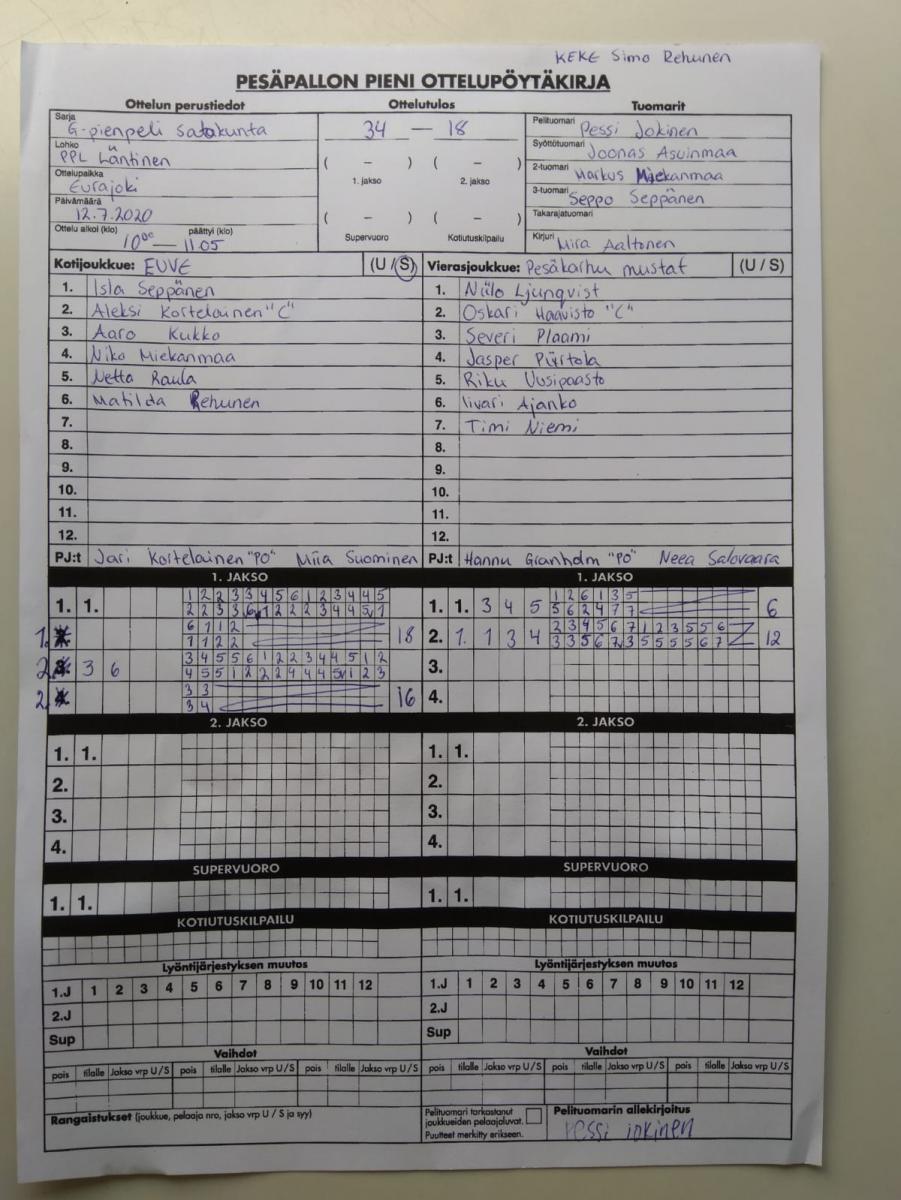 KEKE Simo Rehunen
PESÄPALLON PIENI OTTELUPÖYTÄKIRJA
Ottelun perustiedot Ottelutulos Tuomarit
Sarja G-pienpeli Satakunta
34 — 18
Pelituomari Pessi Jokinen
Lohko PPL Läntinen
Syöttötuomari Joonas Asuinmaa
( – ) ( – )
1. jakso 2. jakso
Ottelupaikka Eurajoki
2-tuomari Markus Miekanmaa
Päivämäärä 12.7.2020
3-tuomari Seppo Seppänen
( – ) ( – )
Takarajatuomari
Ottelu alkoi (klo) päättyi (klo)
10 00 — 11.05
Supervuoro Kotiutuskilpailu
Kirjuri Mira Aaltonen
Kotijoukkue: EUVE (U / S) Vierasjoukkue: Pesäkarhu mustat (U / S)
1. Isla Seppänen 1. Niilo Ljungvist
2. Aleksi Kortelainen "C" 2. Oskari Haavisto "C"
3. Aaro Kukko 3. Severi Plaami
4. Niko Miekanmaa 4. Jasper Piirtola
5. Netta Raula 5. Riku Uusipaasto
6. Matilda Rehunen 6. Iivari Ajanko
7. 7. Timi Niemi
8. 8.
9. 9.
10. 10.
11. 11.
12. 12.
PJ:t Jari Kortelainen "PO" Miia Suominen PJ:t Hannu Granholm "PO" Neea Salovaara
1. JAKSO 1. JAKSO
1. 1. 1 2 2 3 3 4 5 6 1 2 3 4 4 5 1. 1. 3 4 5 1 2 6 1 3 5 6
5 6 2 4 7 7
1. 6 1 1 2 18 2. 1. 1 3 4 2 3 4 5 6 7 1 2 3 5 5 6 12
1 1 2 2 3 3 5 6 7 3 5 5 5 5 6 7
2. 3 6 3 4 5 5 6 1 2 2 3 4 4 5 1 2 3.
2. 3 3 16 4.
3 4
2. JAKSO 2. JAKSO
1. 1. 1. 1.
2. 2.
3. 3.
4. 4.
SUPERVUORO SUPERVUORO
1. 1. 1. 1.
KOTIUTUSKILPAILU KOTIUTUSKILPAILU
Lyöntijärjestyksen muutos Lyöntijärjestyksen muutos
1.J 1 2 3 4 5 6 7 8 9 10 11 12 1.J 1 2 3 4 5 6 7 8 9 10 11 12
2.J 2.J
Sup Sup
Vaihdot Vaihdot
pois tilalle Jakso vrp U/S pois tilalle Jakso vrp U/S pois tilalle Jakso vrp U/S pois tilalle Jakso vrp U/S pois tilalle Jakso vrp U/S pois tilalle Jakso vrp U/S
Rangaistukset (joukkue, pelaaja nro, jakso vrp U / S ja syy)
Pelituomari tarkastanut
joukkueiden pelaajaluvat.
Puutteet merkitty erikseen.
Pelituomarin allekirjoitus
Pessi Jokinen